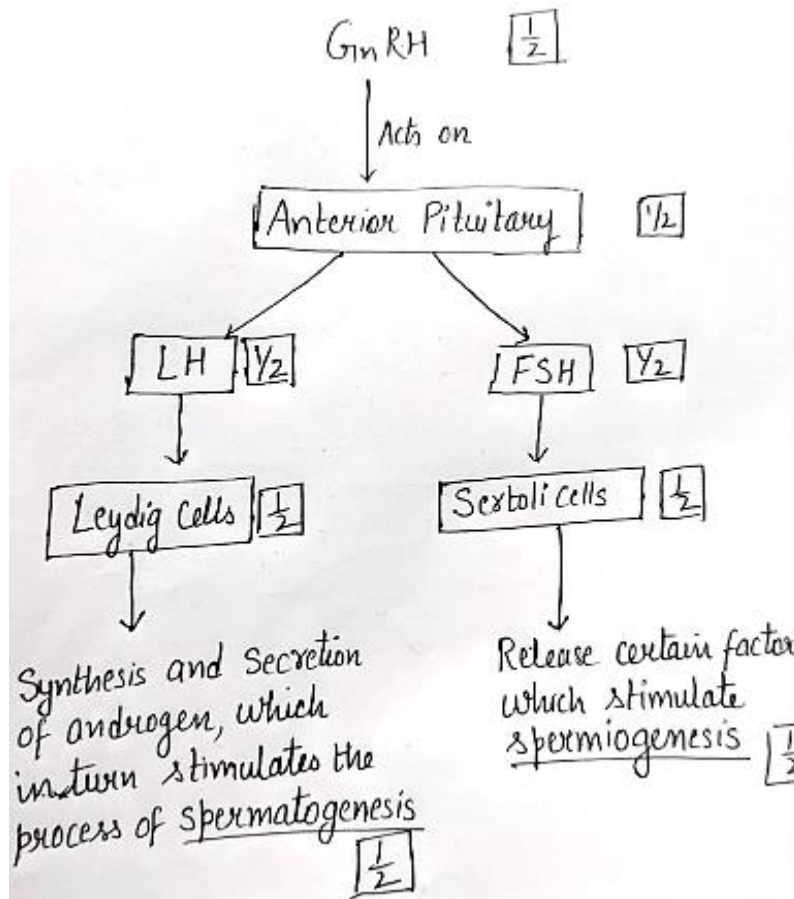 GnRH 1/2
Acts on
Anterior Pituitary 1/2
LH 1/2
FSH 1/2
Leydig Cells 1/2
Sertoli Cells 1/2
Synthesis and Secretion
of androgen, which
in turn stimulates the
process of spermatogenesis
1/2
Release certain factor
which stimulate
spermiogenesis 1/2